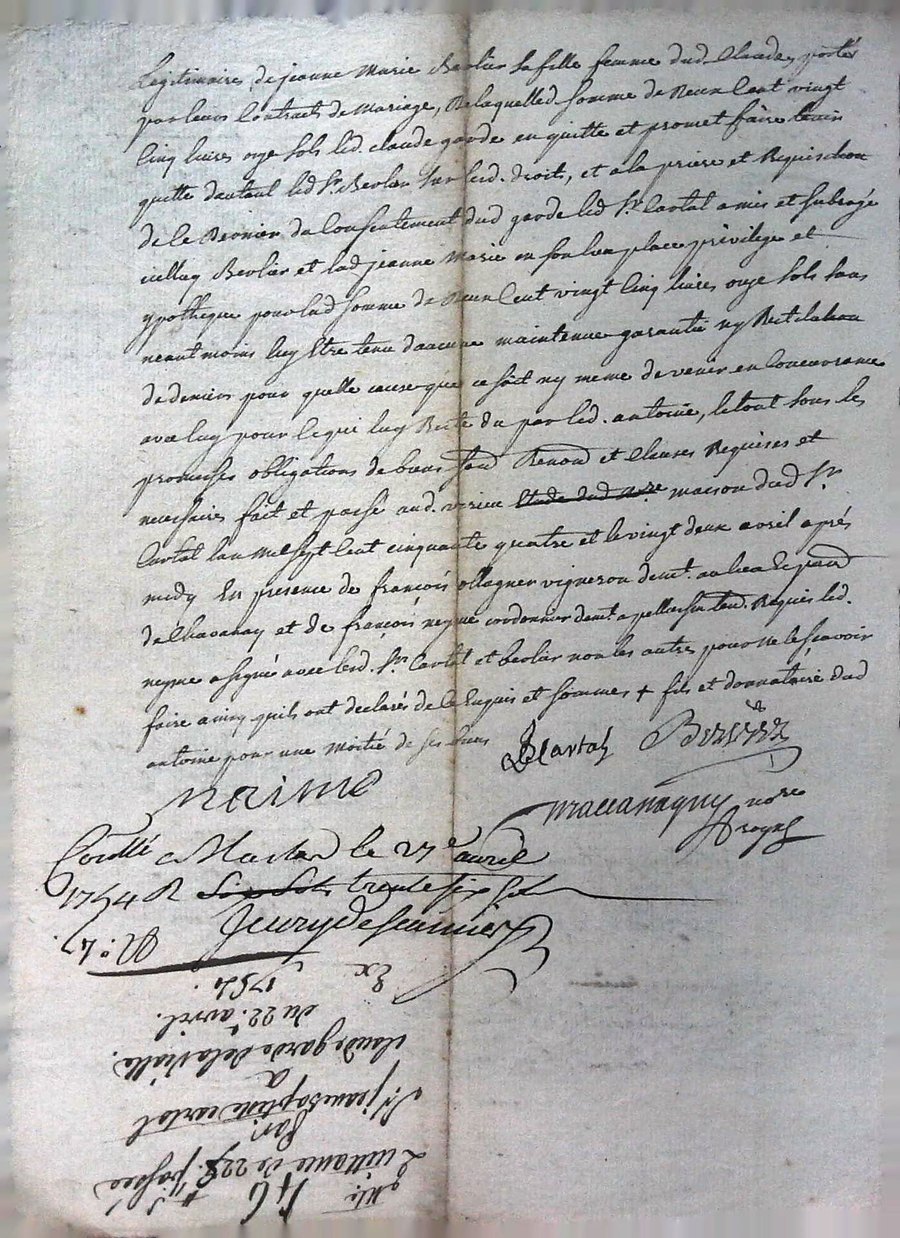 Legitimaires de jeanne Marie Berlier sa fille femme dud. Claude, portés
par leurs Contracts de Mariage, De laquelle d. Somme de Deux Cent vingt
Cinq livres onze sols led. claude garde en quitte et promet faire tenir
quitte dautant led Sr. Berlier sur sesd. droit, et a la priere et Requisition
de le Dernier du Consentement dud garde led Sr. Cartal a mis et subrogé
icelluy Berlier et lad jeanne Marie en son lieu place privilege et
ypotheque pour lad somme de Deux Cent vingt Cinq livres onze sols sans
neantmoins luy Etre tenu daucune maintenue garantie ny Restitution
de deniers pour quelle cause que ce soit ny meme de venir en Concurrance
avec luy pour ce qui luy Reste du par led. antoine, le tout sous les
promesses obligations de biens Renond et Clauses Requises et
necessaires fait et passé aud. verieu Etude dud nore maison dud Sr.
Cartal lan Mil sept Cent cinquante quatre et le vingt deux avril aprés
midy En presence de françois ollagner vigneron demt. au lieu
de Chavanay et de françois neyme cordonnier demt a Requis led.
neyme a signé avec lesd. Sr. Cartal et berlier non les autres pour ne le sçavoir
faire ainsy quils ont declarés de ce Enquis et sommes + fils et donnataire dud
antoine pour une moitié de ses biens
Cartal Berlier
neime
nore
Royal
Corollé le 27e avril
1754 R Six Sols trente six sols
No: 47
Ex
1754.
du 22e. avril.
claude garde de la Viallе.
A
Sr jean baptiste cartal
Par
Quittance de 225# passée
46